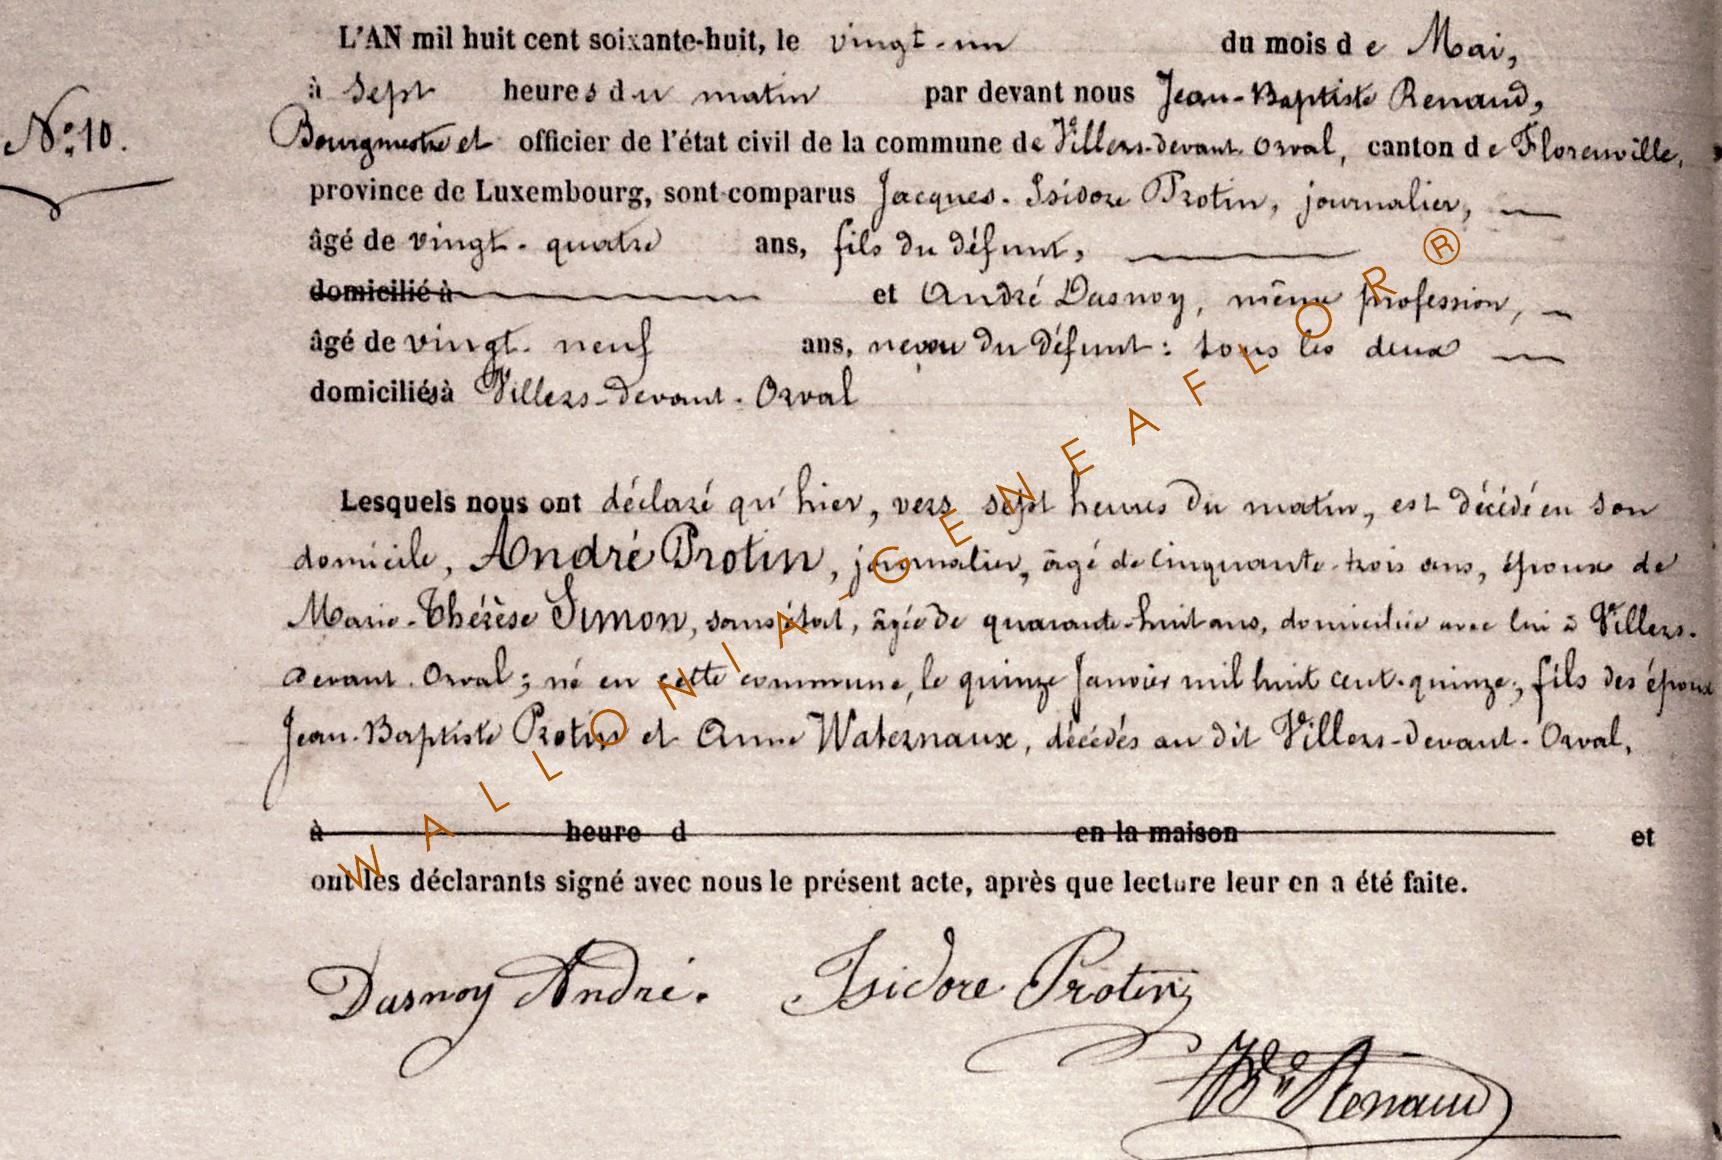 L'AN mil huit cent soixante-huit, le vingt-un du mois de Mai,
à sept heures du matin par devant nous Jean-Baptiste Renaud,
N° 10.
Bourgmestre et officier de l'état civil de la commune de Villers-devant-Orval, canton de Florenville,
province de Luxembourg, sont comparus Jacques-Isidore Protin, journalier,
âgé de vingt-quatre ans, fils du défunt,
domicilié à et André Dasnoy, même profession,
âgé de vingt-neuf ans, neveu du défunt : tous les deux
domiciliés à Villers-devant-Orval
Lesquels nous ont déclaré qu'hier, vers sept heures du matin, est décédé en son
domicile, André Protin, journalier, âgé de cinquante-trois ans, époux de
Marie-Thérèse Simon, sans état, âgée de quarante-huit ans, domiciliée avec lui à Villers-
devant-Orval ; né en cette commune, le quinze Janvier mil huit cent-quinze ; fils des époux
Jean-Baptiste Protin et Anne Waternaux, décédés au dit Villers-devant-Orval,
à heure d en la maison et
ont les déclarants signé avec nous le présent acte, après que lecture leur en a été faite.
Dasnoy André. Isidore Protin
JBte Renaud
WALLONIA-GENEAFLOR®